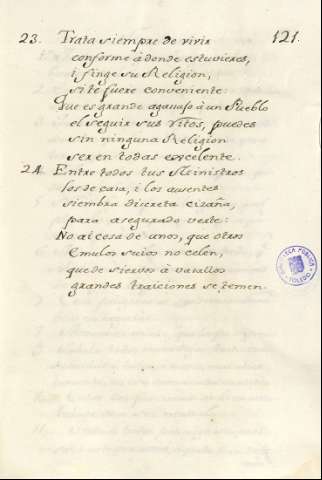 121.
23. Trata siempre de vivir
conforme á donde estuvieres,
i finge su Religion,
si te fuere conveniente:
Que es grande agasajo à un Pueblo
el seguir sus Vitos, puedes
sin ninguna Religion
ser en todas excelente.
24. Entre todos tus Ministros
los de casa, i los ausentes
siembra discreta cizaña,
para asegurado verte:
No ai cosa de unos, que otros
Emulos suios no celen,
que de siervos à vasallos
grandes traiciones se temen.
TOLEDO